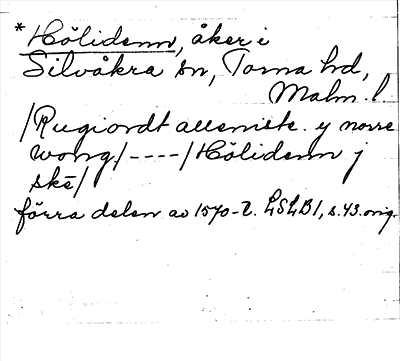 * Hölidenn, åker i
Silvåkra sn, Torna hd,
Malm. l.
/Rugiordt allemste. y norre
wong/----/Hölidenn j
skē/
förra delen av 1570-t. LSLB1, s.43.orig.